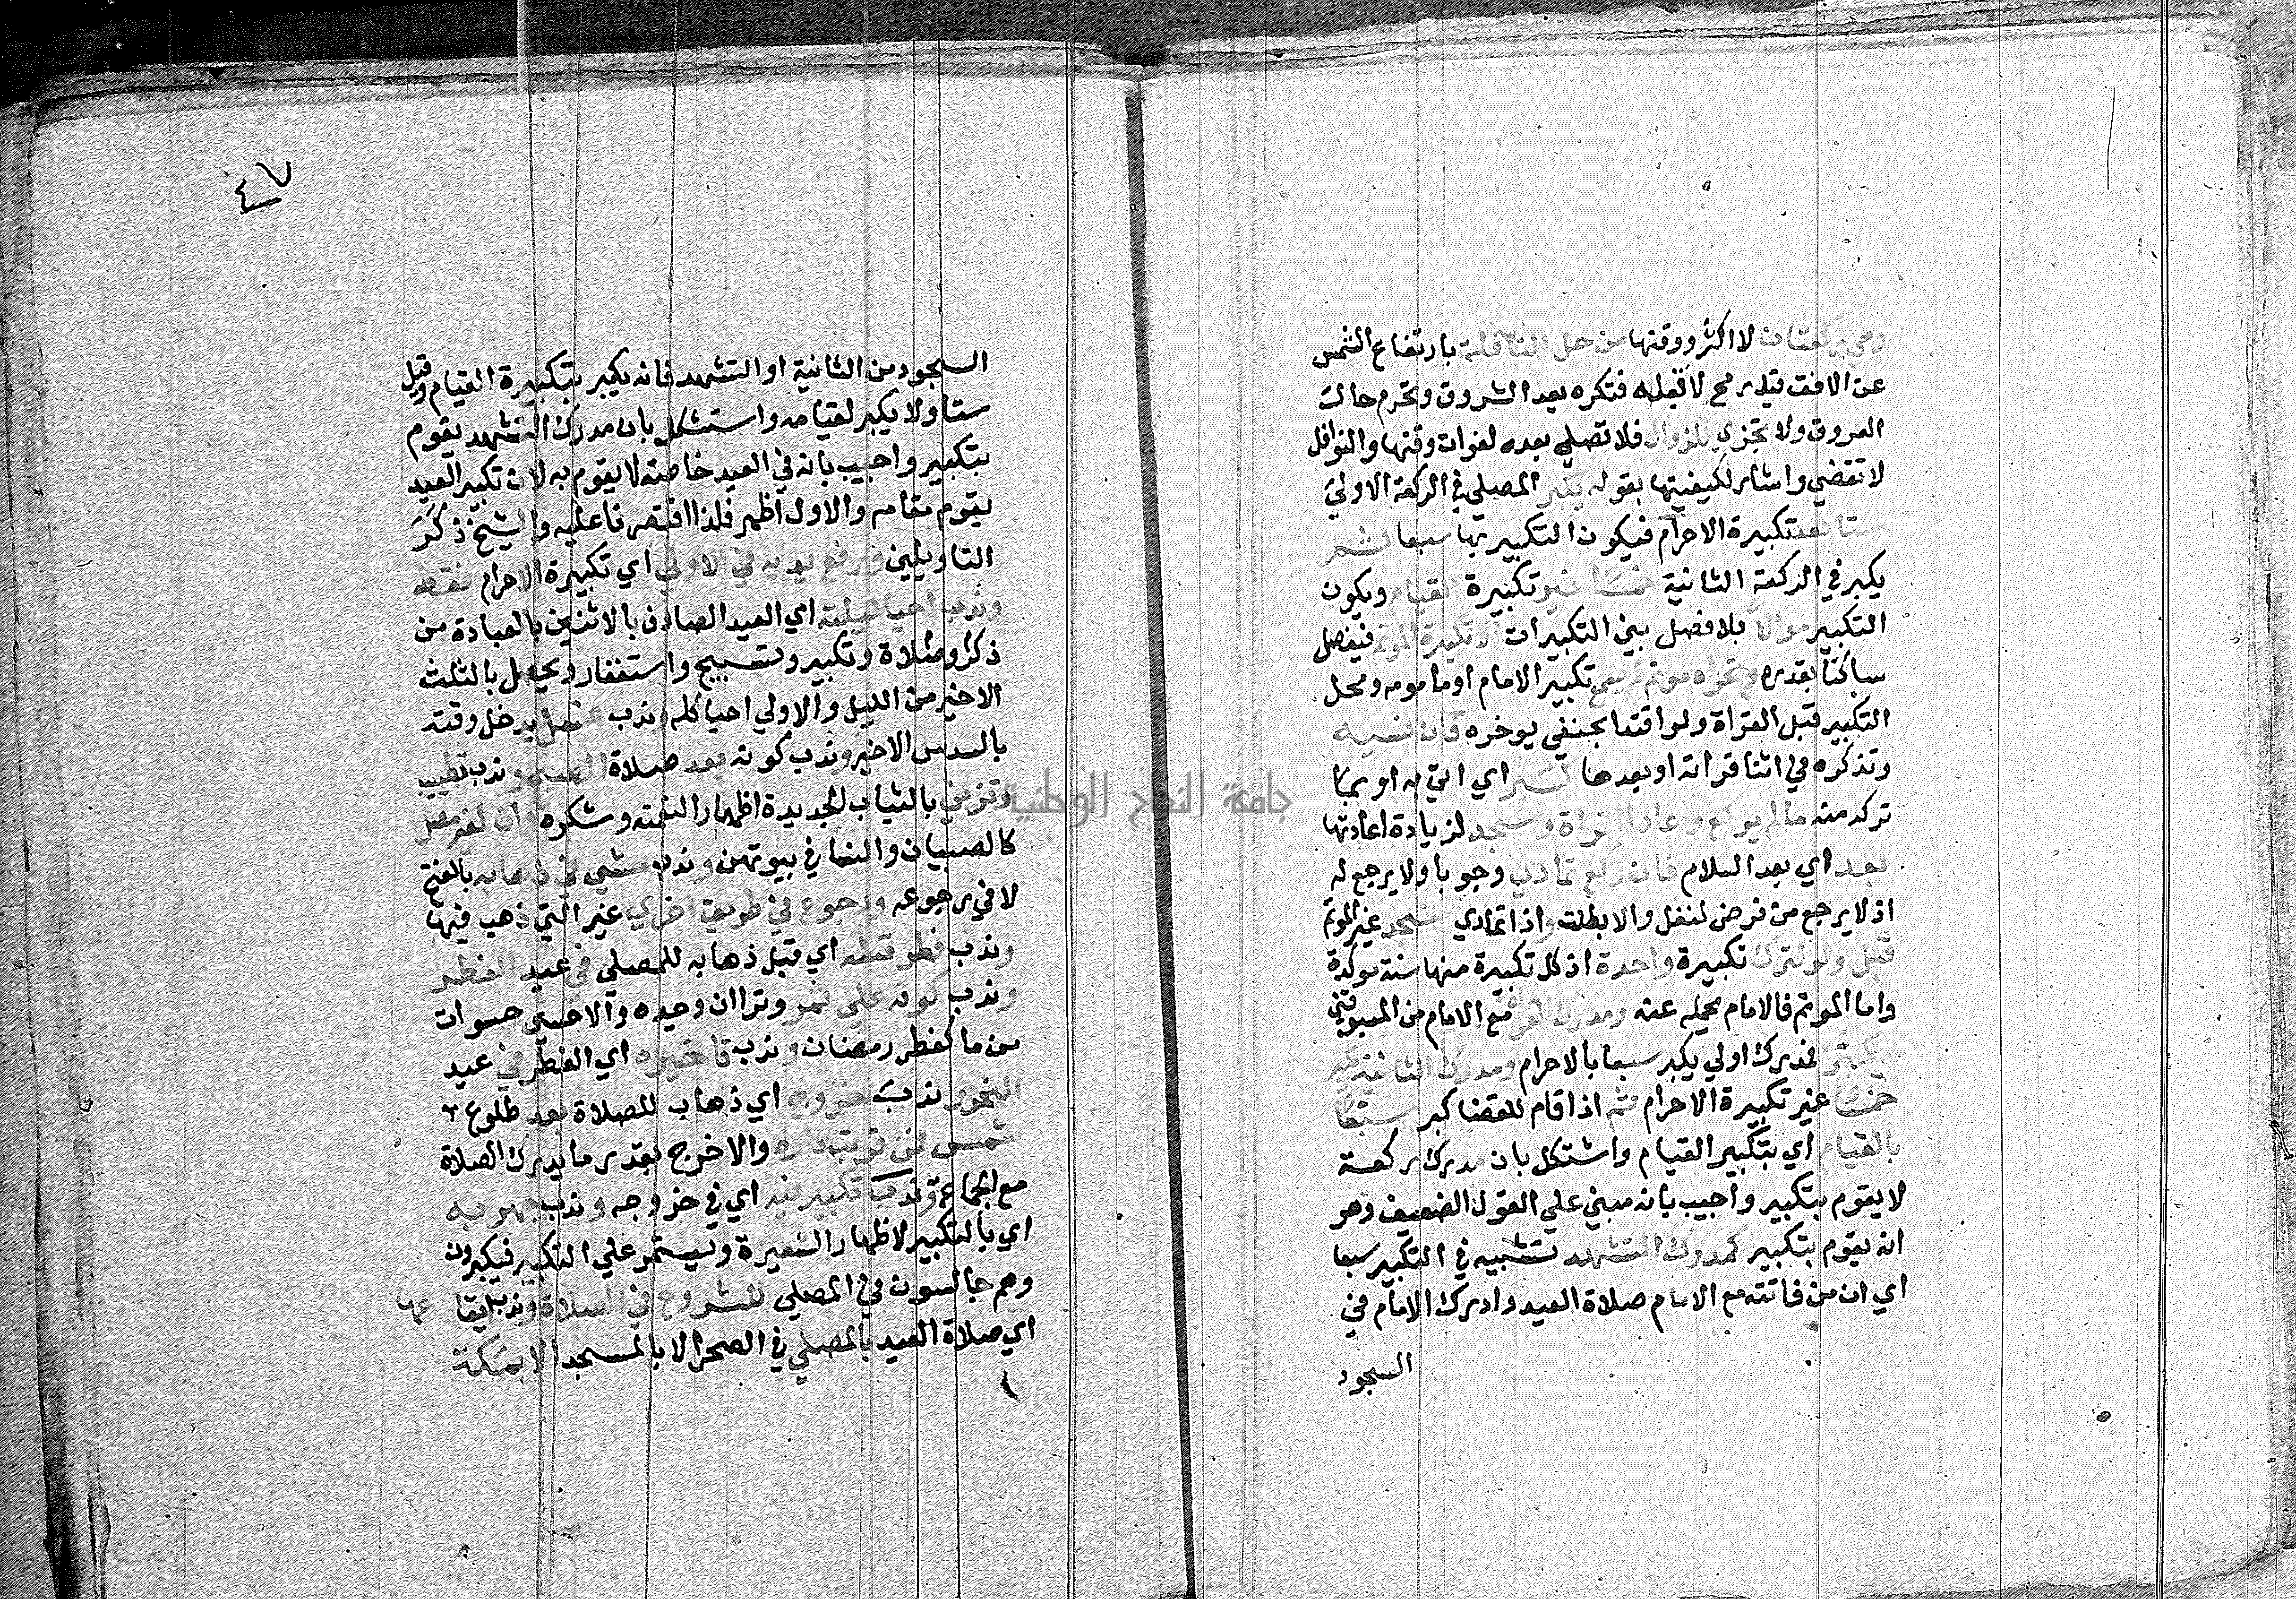 وهي ركعتان لا اكثر ووقتها من حل النافلة بارتفاع الشمس
عن الافق قيد رمح لا قبله فتكره بعد الشروق وتحرم حالت
الشروق ولا تجزي للزوال فلا تصلي بعده لفوات وقتها والنوافل
لا تقضي واشار لكيفيتها بقوله يكبر المصلي في الركعة الاولي
ستا بعد تكبيرة الاحرام فيكون التكبير بها سبعا ثم
يكبر في الركعة الثانية خمسا غير تكبيرة لقيام ويكون
التكبير موالا بلا فصل بين التكبيرات الا تكبيرة الموتم فيفصل
ساكتا بقدره وتحراه موتم لم يسمع تكبير الامام او مامومه ومحل
التكبير قبل القراة ولو اقتدا بحنفي يوخره فان نسيه
وتذكره في اثنا قراته او بعدها كبر اي اتي به او بما
تركه منه ما لم يركع واعاد القراة وسجد لزيادة اعادتها
بعد اي بعد السلام فان ركع تمادي وجوبا ولا يرجع له
اذ لا يرجع من فرض لنفل والا بطلت واذا تمادي سجد غير الموتم
قبل ولو لترك تكبيرة واحدة اذ كل تكبيرة منها سنة موكدة
واما الموتم فالامام يحمله عنه ومدرك القراة مع الامام من المسبوقين
يكبر فمدرك اولي يكبر سبعا بالاحرام ومدرك الثانية يكبر
خمسا غير تكبيرة الاحرام ثم اذا قام للقضا كبر سبعا
بالقيام اي بتكبير القيام واشتكل بان مدرك ركعة
لا يقوم بتكبير واجيب بانه مبني علي القول الضعيف وهو
انه يقوم بتكبير كمدرك التشهد تشبيه في التكبير سبعا
اي ان من فاتته مع الامام صلاة العيد وادرك الامام في
السجود
٤٧
السجود من الثانية او التشهد فانه يكبر بتكبيرة القيام وقيل
ستا ولا يكبر لقيامه واستشكل بان مدرك التشهد يقوم
بتكبير واجيب بانه في العيد خاصة لا يقوم به لان تكبير العيد
يقوم مقامه والاول اظهر فلذا اقتصرنا عليه والشيخ ذكر
التاويلين ويرفع يديه في الاولي اي تكبيرة الاحرام فقط
وندب احيا ليلته اي العيد الصادق بالاثنين بالعبادة من
ذكر وصلاة وتكبير وتسبيح واستغفار ويحصل بالثلث
الاخير من الليل والاولي احيا كله وندب غسل يدخل وقته
بالسدس الاخير وندب كونه بعد صلاة الصبح وندب تطييب
وتزين بالثياب الجديدة اظهار النعمته وشكره وان لغير مصل
كالصبيان والنسا في بيوتهن وندب مشي في ذهابه بالفتح
لا في رجوعه ورجوع في طريق اخري غير التي ذهب فيها
وندب فطر قبله اي قبل ذهابه للمصلي في عيد الفطر
وندب كونه علي تمر وترا ان وجده والا حسي حسوات
من ما كفطر رمضان وندب تاخيره اي الفطر في عيد
النحر وندب خروج اي ذهاب للصلاة بعد طلوع
شمس لمن قربت داره والا خرج بقدر ما يدرك الصلاة
مع الجماعة وندب تكبير فيه اي في خروجه وندب جهر به
اي بالتكبير لاظهار الشعيرة ويستمر علي التكبير فيكبرون
وهم جالسون في المصلي للشروع في الصلاة وندب ايقاعها
اي صلاة العيد بالمصلي في الصحرا لا بالمسجد الا بمكة
جامعة النجاح الوطنية